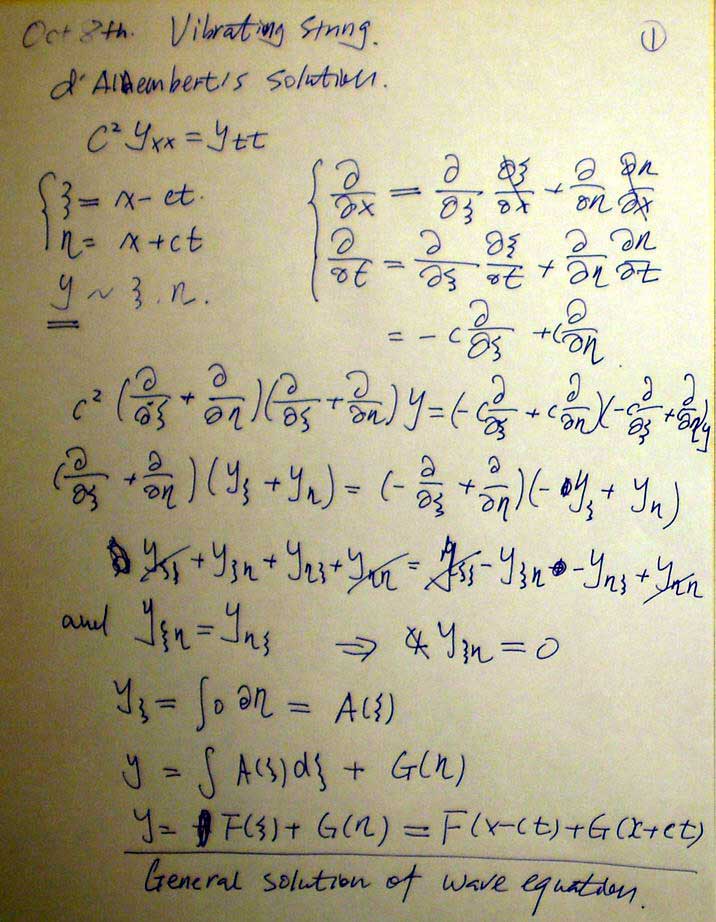 Oct 8th. Vibrating String. ①
d'Alembert's solution.
c² y_xx = y_tt
{ ξ = x - ct.
η = x + ct
y ~ ξ, η.
{ ∂/∂x = ∂/∂ξ ∂ξ/∂x + ∂/∂η ∂η/∂x
∂/∂t = ∂/∂ξ ∂ξ/∂t + ∂/∂η ∂η/∂t
= - c ∂/∂ξ + c ∂/∂η
c² (∂/∂ξ + ∂/∂η)(∂/∂ξ + ∂/∂η) y = (-c ∂/∂ξ + c ∂/∂η)(-c ∂/∂ξ + ∂/∂η) y
(∂/∂ξ + ∂/∂η)(y_ξ + y_η) = (- ∂/∂ξ + ∂/∂η)(- y_ξ + y_η)
y_ξξ + y_ξη + y_ηξ + y_ηη = y_ξξ - y_ξη - y_ηξ + y_ηη
and y_ξη = y_ηξ ⇒ 4 y_ξη = 0
y_ξ = ∫ 0 ∂η = A(ξ)
y = ∫ A(ξ) dξ + G(η)
y = F(ξ) + G(η) = F(x-ct) + G(x+ct)
General solution of wave equation.